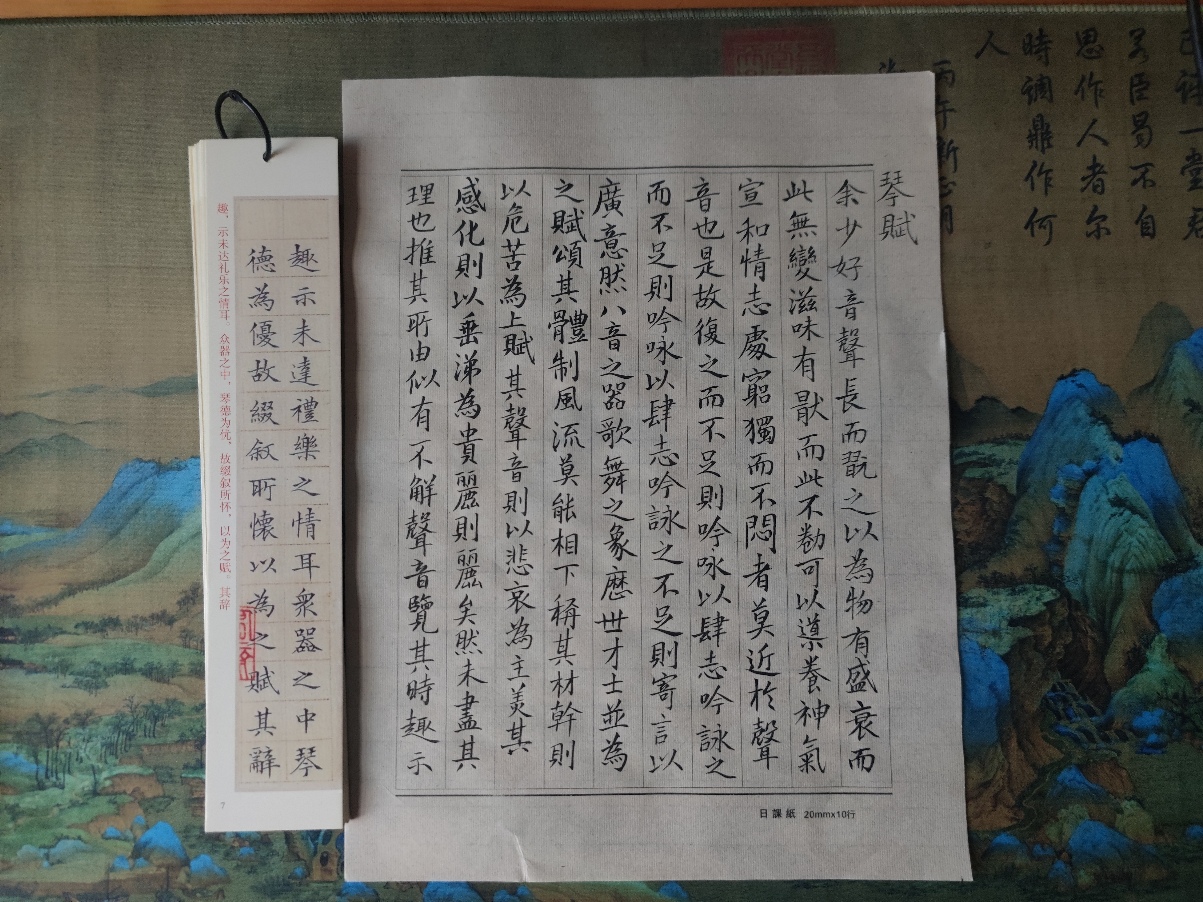 琴賦
余少好音聲長而翫之以為物有盛衰而
此無變滋味有猒而此不勌可以導養神氣
宣和情志處窮獨而不悶者莫近於聲
音也是故復之而不足則吟咏以肆志吟詠之
而不足則吟咏以肆志吟詠之不足則寄言以
廣意然八音之器歌舞之象歷世才士並為
之賦頌其體制風流莫能相下稱其材幹則
以危苦為上賦其聲音則以悲哀為主美其
感化則以垂涕為貴麗則麗矣然未盡其
理也推其所由似有不解聲音覽其時趣示
日課紙 20mmx10行
趣示未達禮樂之情耳衆器之中琴
德為優故綴叙所懷以為之賦其辭
趣，示未达礼乐之情耳。众器之中，琴德为优，故缀叙所怀，以为之赋。其辞
7
人
時調鼎作何
思作人者尔
若臣曷不自
丙午新正月